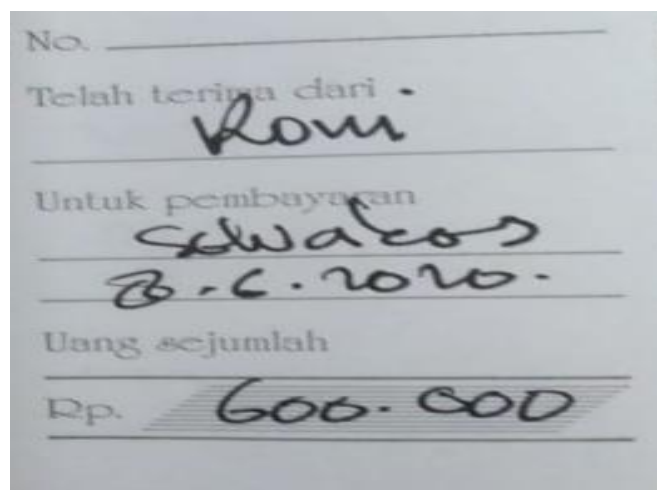 No.
Telah terima dari
Roni
Untuk pembayaran
Sewa kos
8.6.2020.
Uang sejumlah
Rp. 600.000